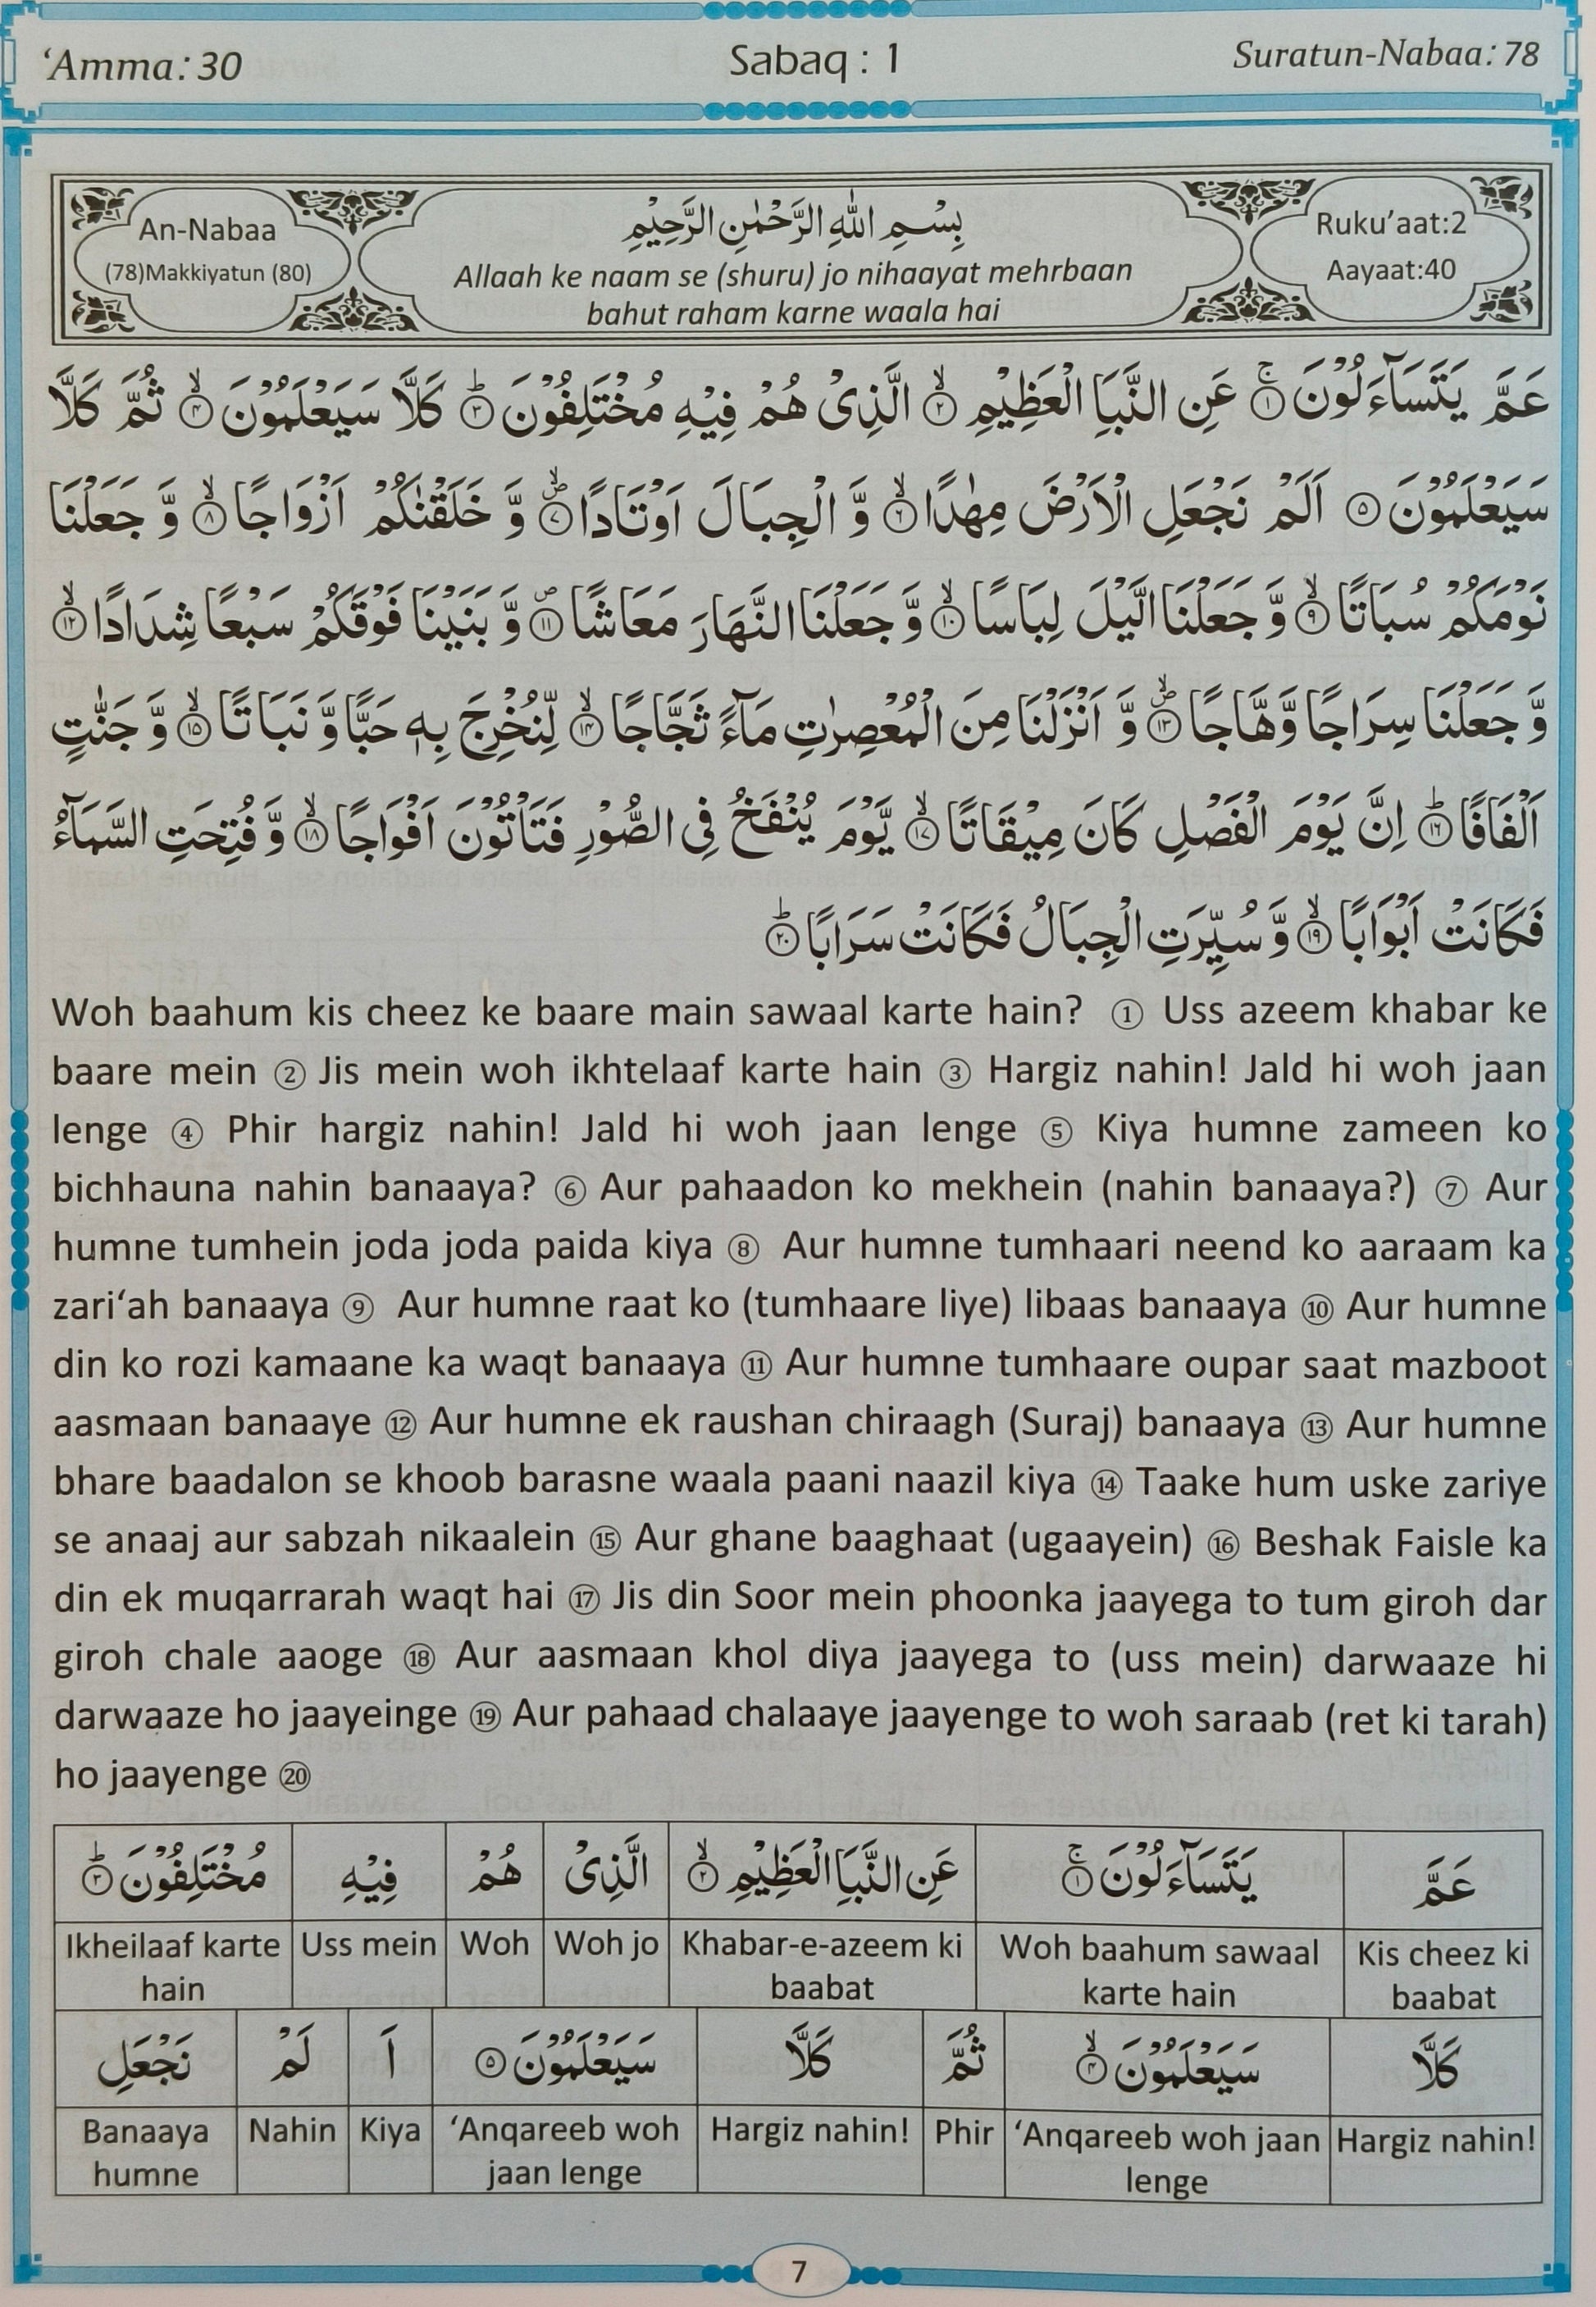 ‘Amma: 30
Sabaq : 1
Suratun-Nabaa: 78
An-Nabaa
(78)Makkiyatun (80)
بِسْمِ اللّٰهِ الرَّحْمٰنِ الرَّحِيْمِ
Allaah ke naam se (shuru) jo nihaayat mehrbaan
bahut raham karne waala hai
Ruku’aat:2
Aayaat:40
عَمَّ يَتَسَآءَلُوْنَ ۚ۝١ عَنِ النَّبَاِ الْعَظِيْمِ ۙ۝٢ الَّذِيْ هُمْ فِيْهِ مُخْتَلِفُوْنَ ؕ۝٣ كَلَّا سَيَعْلَمُوْنَ ۙ۝٤ ثُمَّ كَلَّا
سَيَعْلَمُوْنَ ۝٥ اَلَمْ نَجْعَلِ الْاَرْضَ مِهٰدًا ۙ۝٦ وَّ الْجِبَالَ اَوْتَادًا ۪ۙ۝٧ وَّ خَلَقْنٰكُمْ اَزْوَاجًا ۙ۝٨ وَّ جَعَلْنَا
نَوْمَكُمْ سُبَاتًا ۙ۝٩ وَّ جَعَلْنَا الَّيْلَ لِبَاسًا ۙ۝١٠ وَّ جَعَلْنَا النَّهَارَ مَعَاشًا ۪۝١١ وَّ بَنَيْنَا فَوْقَكُمْ سَبْعًا شِدَادًا ۙ۝١٢
وَّ جَعَلْنَا سِرَاجًا وَّهَّاجًا ۪ۙ۝١٣ وَّ اَنْزَلْنَا مِنَ الْمُعْصِرٰتِ مَآءً ثَجَّاجًا ۙ۝١٤ لِّنُخْرِجَ بِهٖ حَبًّا وَّ نَبَاتًا ۙ۝١٥ وَّ جَنّٰتٍ
اَلْفَافًا ؕ۝١٦ اِنَّ يَوْمَ الْفَصْلِ كَانَ مِيْقَاتًا ۙ۝١٧ يَّوْمَ يُنْفَخُ فِي الصُّوْرِ فَتَاْتُوْنَ اَفْوَاجًا ۙ۝١٨ وَّ فُتِحَتِ السَّمَآءُ
فَكَانَتْ اَبْوَابًا ۙ۝١٩ وَّ سُيِّرَتِ الْجِبَالُ فَكَانَتْ سَرَابًا ؕ۝٢٠
Woh baahum kis cheez ke baare main sawaal karte hain? ① Uss azeem khabar ke
baare mein ② Jis mein woh ikhtelaaf karte hain ③ Hargiz nahin! Jald hi woh jaan
lenge ④ Phir hargiz nahin! Jald hi woh jaan lenge ⑤ Kiya humne zameen ko
bichhauna nahin banaaya? ⑥ Aur pahaadon ko mekhein (nahin banaaya?) ⑦ Aur
humne tumhein joda joda paida kiya ⑧ Aur humne tumhaari neend ko aaraam ka
zari‘ah banaaya ⑨ Aur humne raat ko (tumhaare liye) libaas banaaya ⑩ Aur humne
din ko rozi kamaane ka waqt banaaya ⑪ Aur humne tumhaare oupar saat mazboot
aasmaan banaaye ⑫ Aur humne ek raushan chiraagh (Suraj) banaaya ⑬ Aur humne
bhare baadalon se khoob barasne waala paani naazil kiya ⑭ Taake hum uske zariye
se anaaj aur sabzah nikaalein ⑮ Aur ghane baaghaat (ugaayein) ⑯ Beshak Faisle ka
din ek muqarrarah waqt hai ⑰ Jis din Soor mein phoonka jaayega to tum giroh dar
giroh chale aaoge ⑱ Aur aasmaan khol diya jaayega to (uss mein) darwaaze hi
darwaaze ho jaayeinge ⑲ Aur pahaad chalaaye jaayenge to woh saraab (ret ki tarah)
ho jaayenge ⑳
عَمَّ يَتَسَآءَلُوْنَ ۚ۝١ عَنِ النَّبَاِ الْعَظِيْمِ ۙ۝٢ الَّذِيْ هُمْ فِيْهِ مُخْتَلِفُوْنَ ؕ۝٣
Ikheilaaf karte hain Uss mein Woh Woh jo Khabar-e-azeem ki baabat Woh baahum sawaal karte hain Kis cheez ki baabat
كَلَّا سَيَعْلَمُوْنَ ۙ۝٤ ثُمَّ كَلَّا سَيَعْلَمُوْنَ ۝٥ اَ لَمْ نَجْعَلِ
Banaaya humne Nahin Kiya ‘Anqareeb woh jaan lenge Hargiz nahin! Phir ‘Anqareeb woh jaan lenge Hargiz nahin!
7